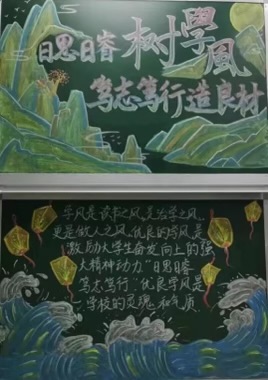 日思日睿 树學風
笃志笃行造良材
学风是读书之风,是治学之风,
更是做人之风,优良的学风是
激励大学生奋发向上的强
大精神动力“日思日睿
笃志笃行”优良学风是
一学校的灵魂和气质